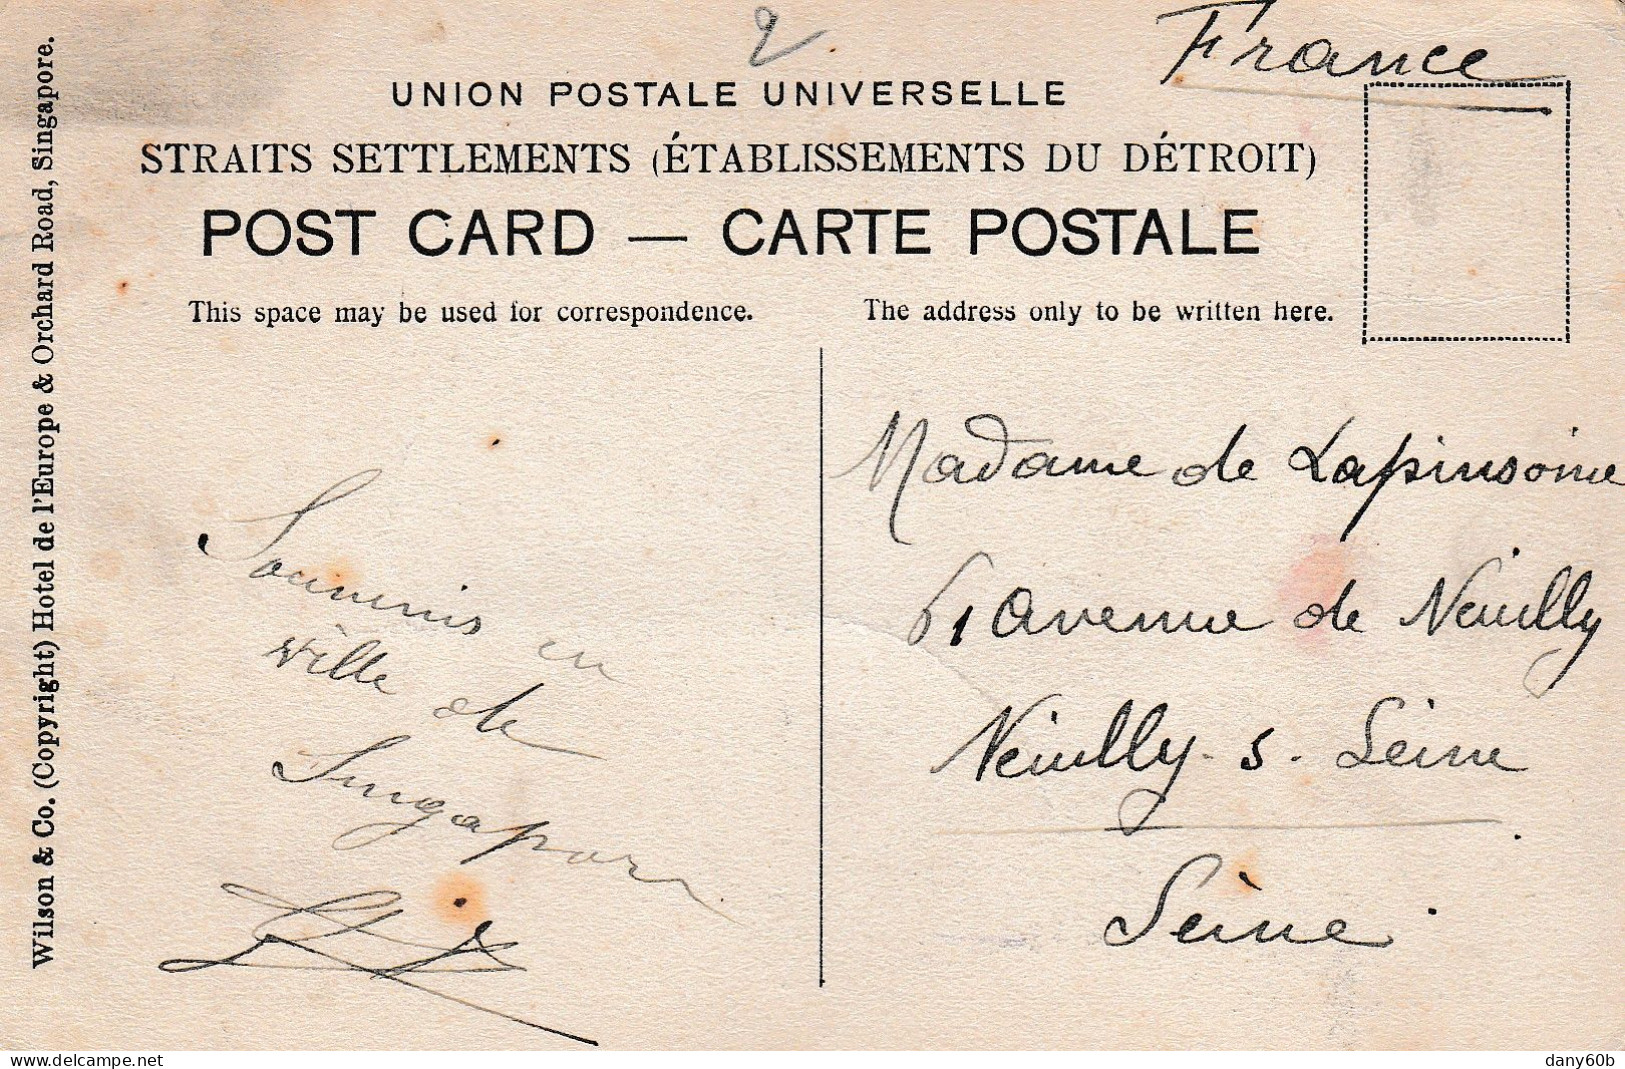 2
France
UNION POSTALE UNIVERSELLE
STRAITS SETTLEMENTS (ÉTABLISSEMENTS DU DÉTROIT)
POST CARD — CARTE POSTALE
This space may be used for correspondence.
The address only to be written here.
Wilson & Co. (Copyright) Hotel de l'Europe & Orchard Road, Singapore.
Souvenirs en
ville de
Singapor
Madame de Lapinsonie
61 avenue de Neuilly
Neuilly-s-Seine
Seine.
delcampe.net
dany60b